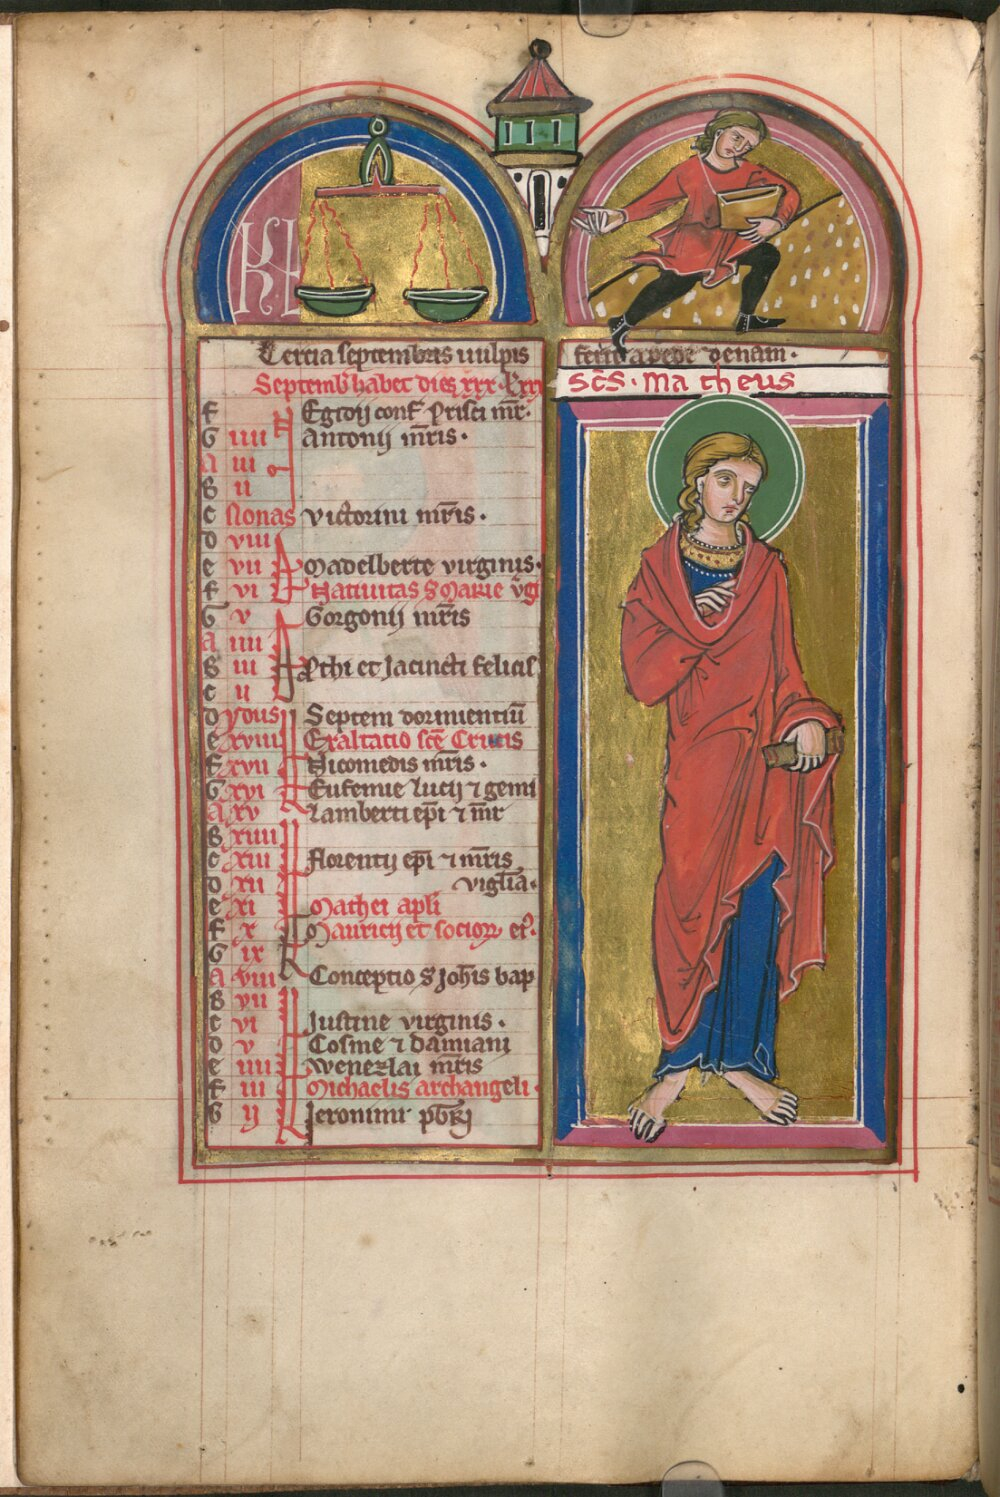 KL
Tercia septembris uulpis
ferit a pede denam.
Septemb̄ habet dies xxx. l
SC̄S. Matheus
F Egidij conf̄ Prisci m̄r.
G iiii Antonij m̄ris.
A iii
B ii
C Nonas Victorini m̄ris.
D viii
e vii Madelberte virginis.
F vi Natiuitas S Marie v̄g
G v Gorgonij m̄ris
A iiii
B iii Pthi et Jacincti felicis
C ii
D ydus Septem dormientiū
e xviii Exaltatio sc̄e Crucis
F xvii Nicomedis m̄ris.
G xvi Eufemie lucij ⁊ gemi
A xv Lamberti ep̄i ⁊ m̄r
B xiiii
C xiii Florentij ep̄i ⁊ m̄ris
D xii vigl̄ia.
e xi Mathei apl̄i
F x Mauricij et socioꝝ eiꝰ.
G ix
A viii Conceptio S Joh̄is bap
B vii
C vi Justine virginis.
D v Cosme ⁊ damiani
e iiii Wenezlai m̄ris
F iii Michaelis archangeli.
G ij Jeronimi pb̄ri